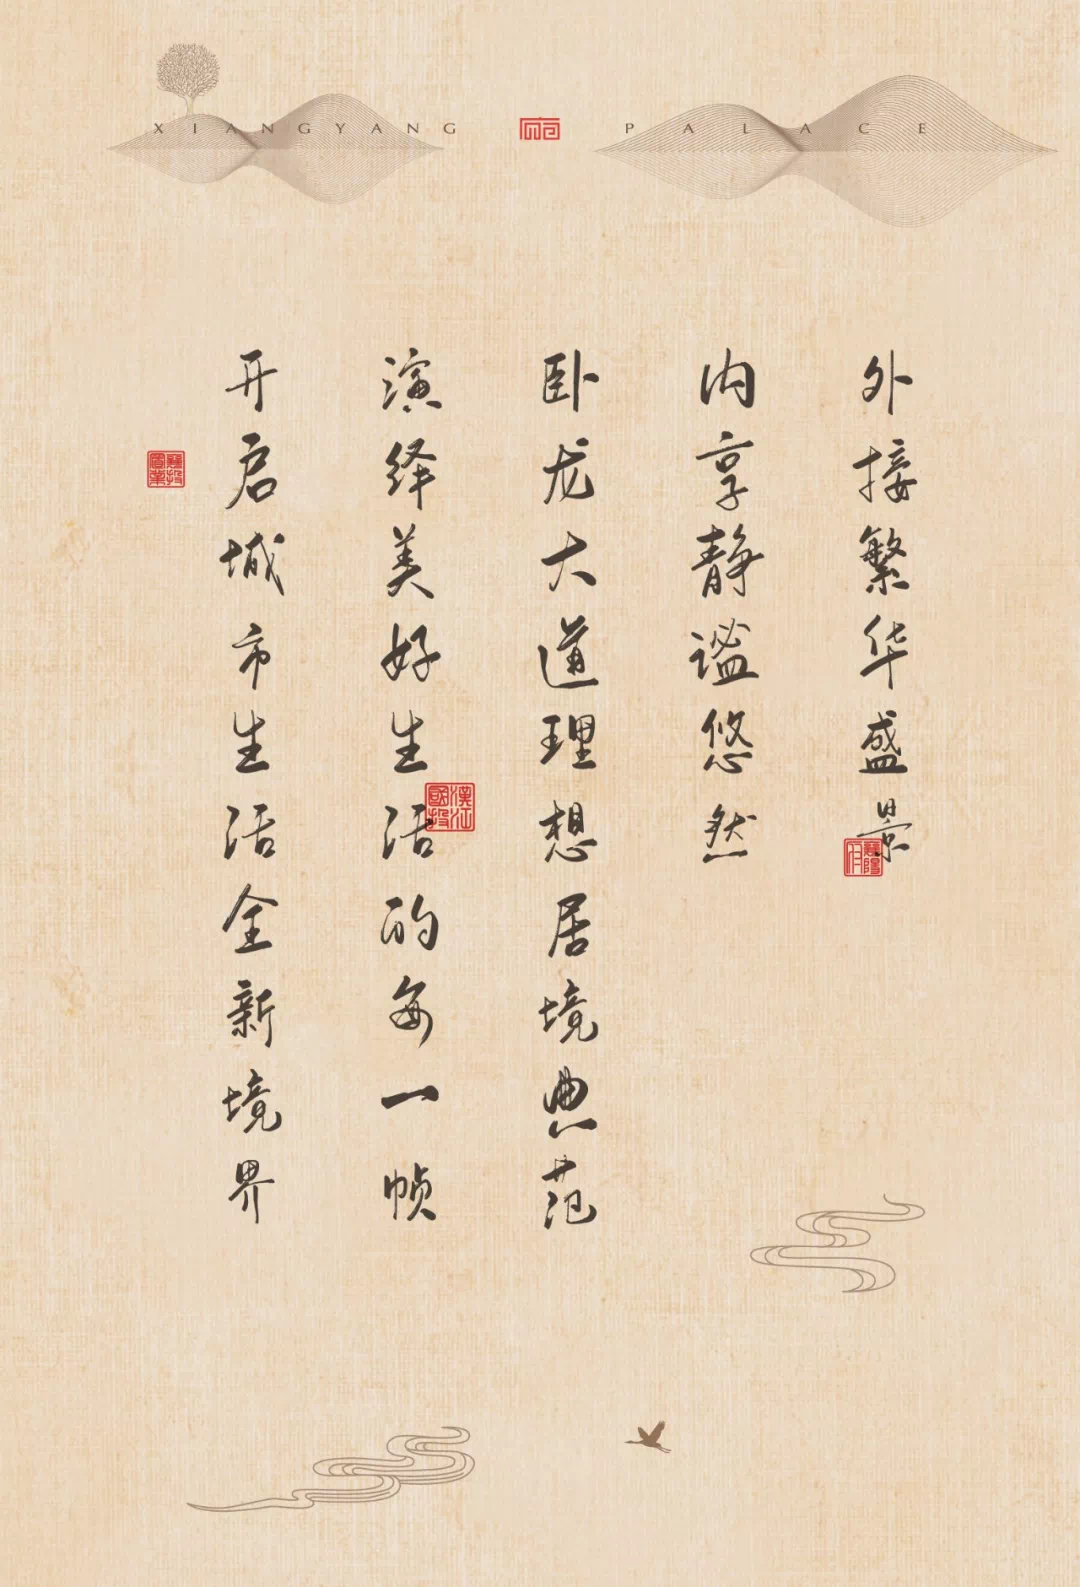 XIANGYANG PALACE
外接繁华盛景
内享静谧悠然
卧龙大道理想居境典范
演绎美好生活的每一帧
开启城市生活全新境界
襄陽府
漢江國投
襄投置業